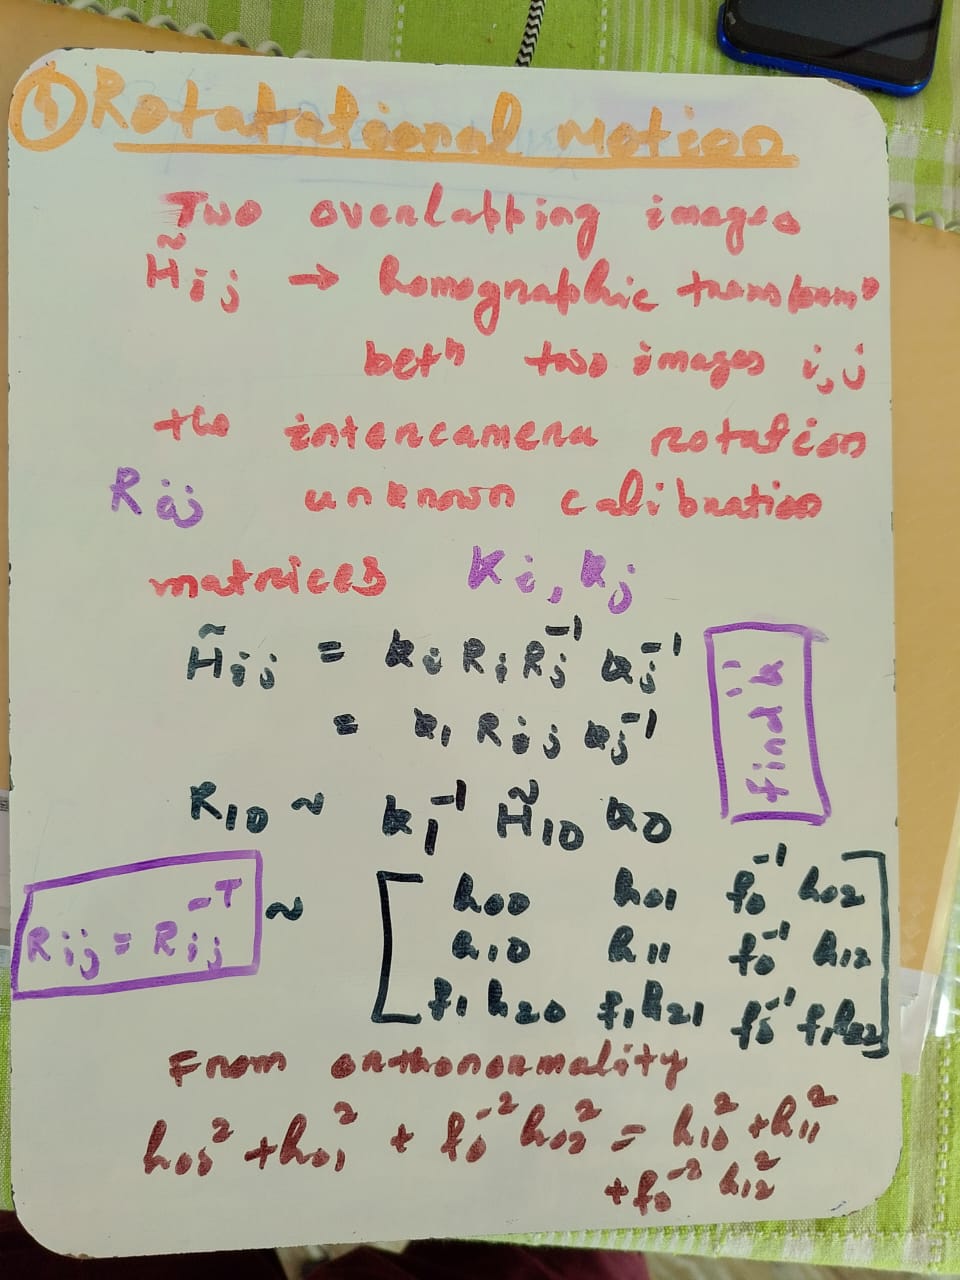 ① Rotatational Motion
Two overlapping images
H̃ij → homographic transformⁿ
betⁿ two images i,j
the intercamera rotation
Rij unknown calibration
matrices Ki, Kj
H̃ij = Ki Ri Rj⁻¹ Kj⁻¹
= K1 Rij Kj⁻¹
find 'k'
R10 ~ K1⁻¹ H̃10 K0
Rij = Rij⁻ᵀ
~ [ h00 h01 f0⁻¹ h02
h10 h11 f0⁻¹ h12
f1 h20 f1 h21 f0⁻¹ f1 h22 ]
From orthonormality
h00² + h01² + f0⁻² h02² = h10² + h11²
+ f0⁻² h12²